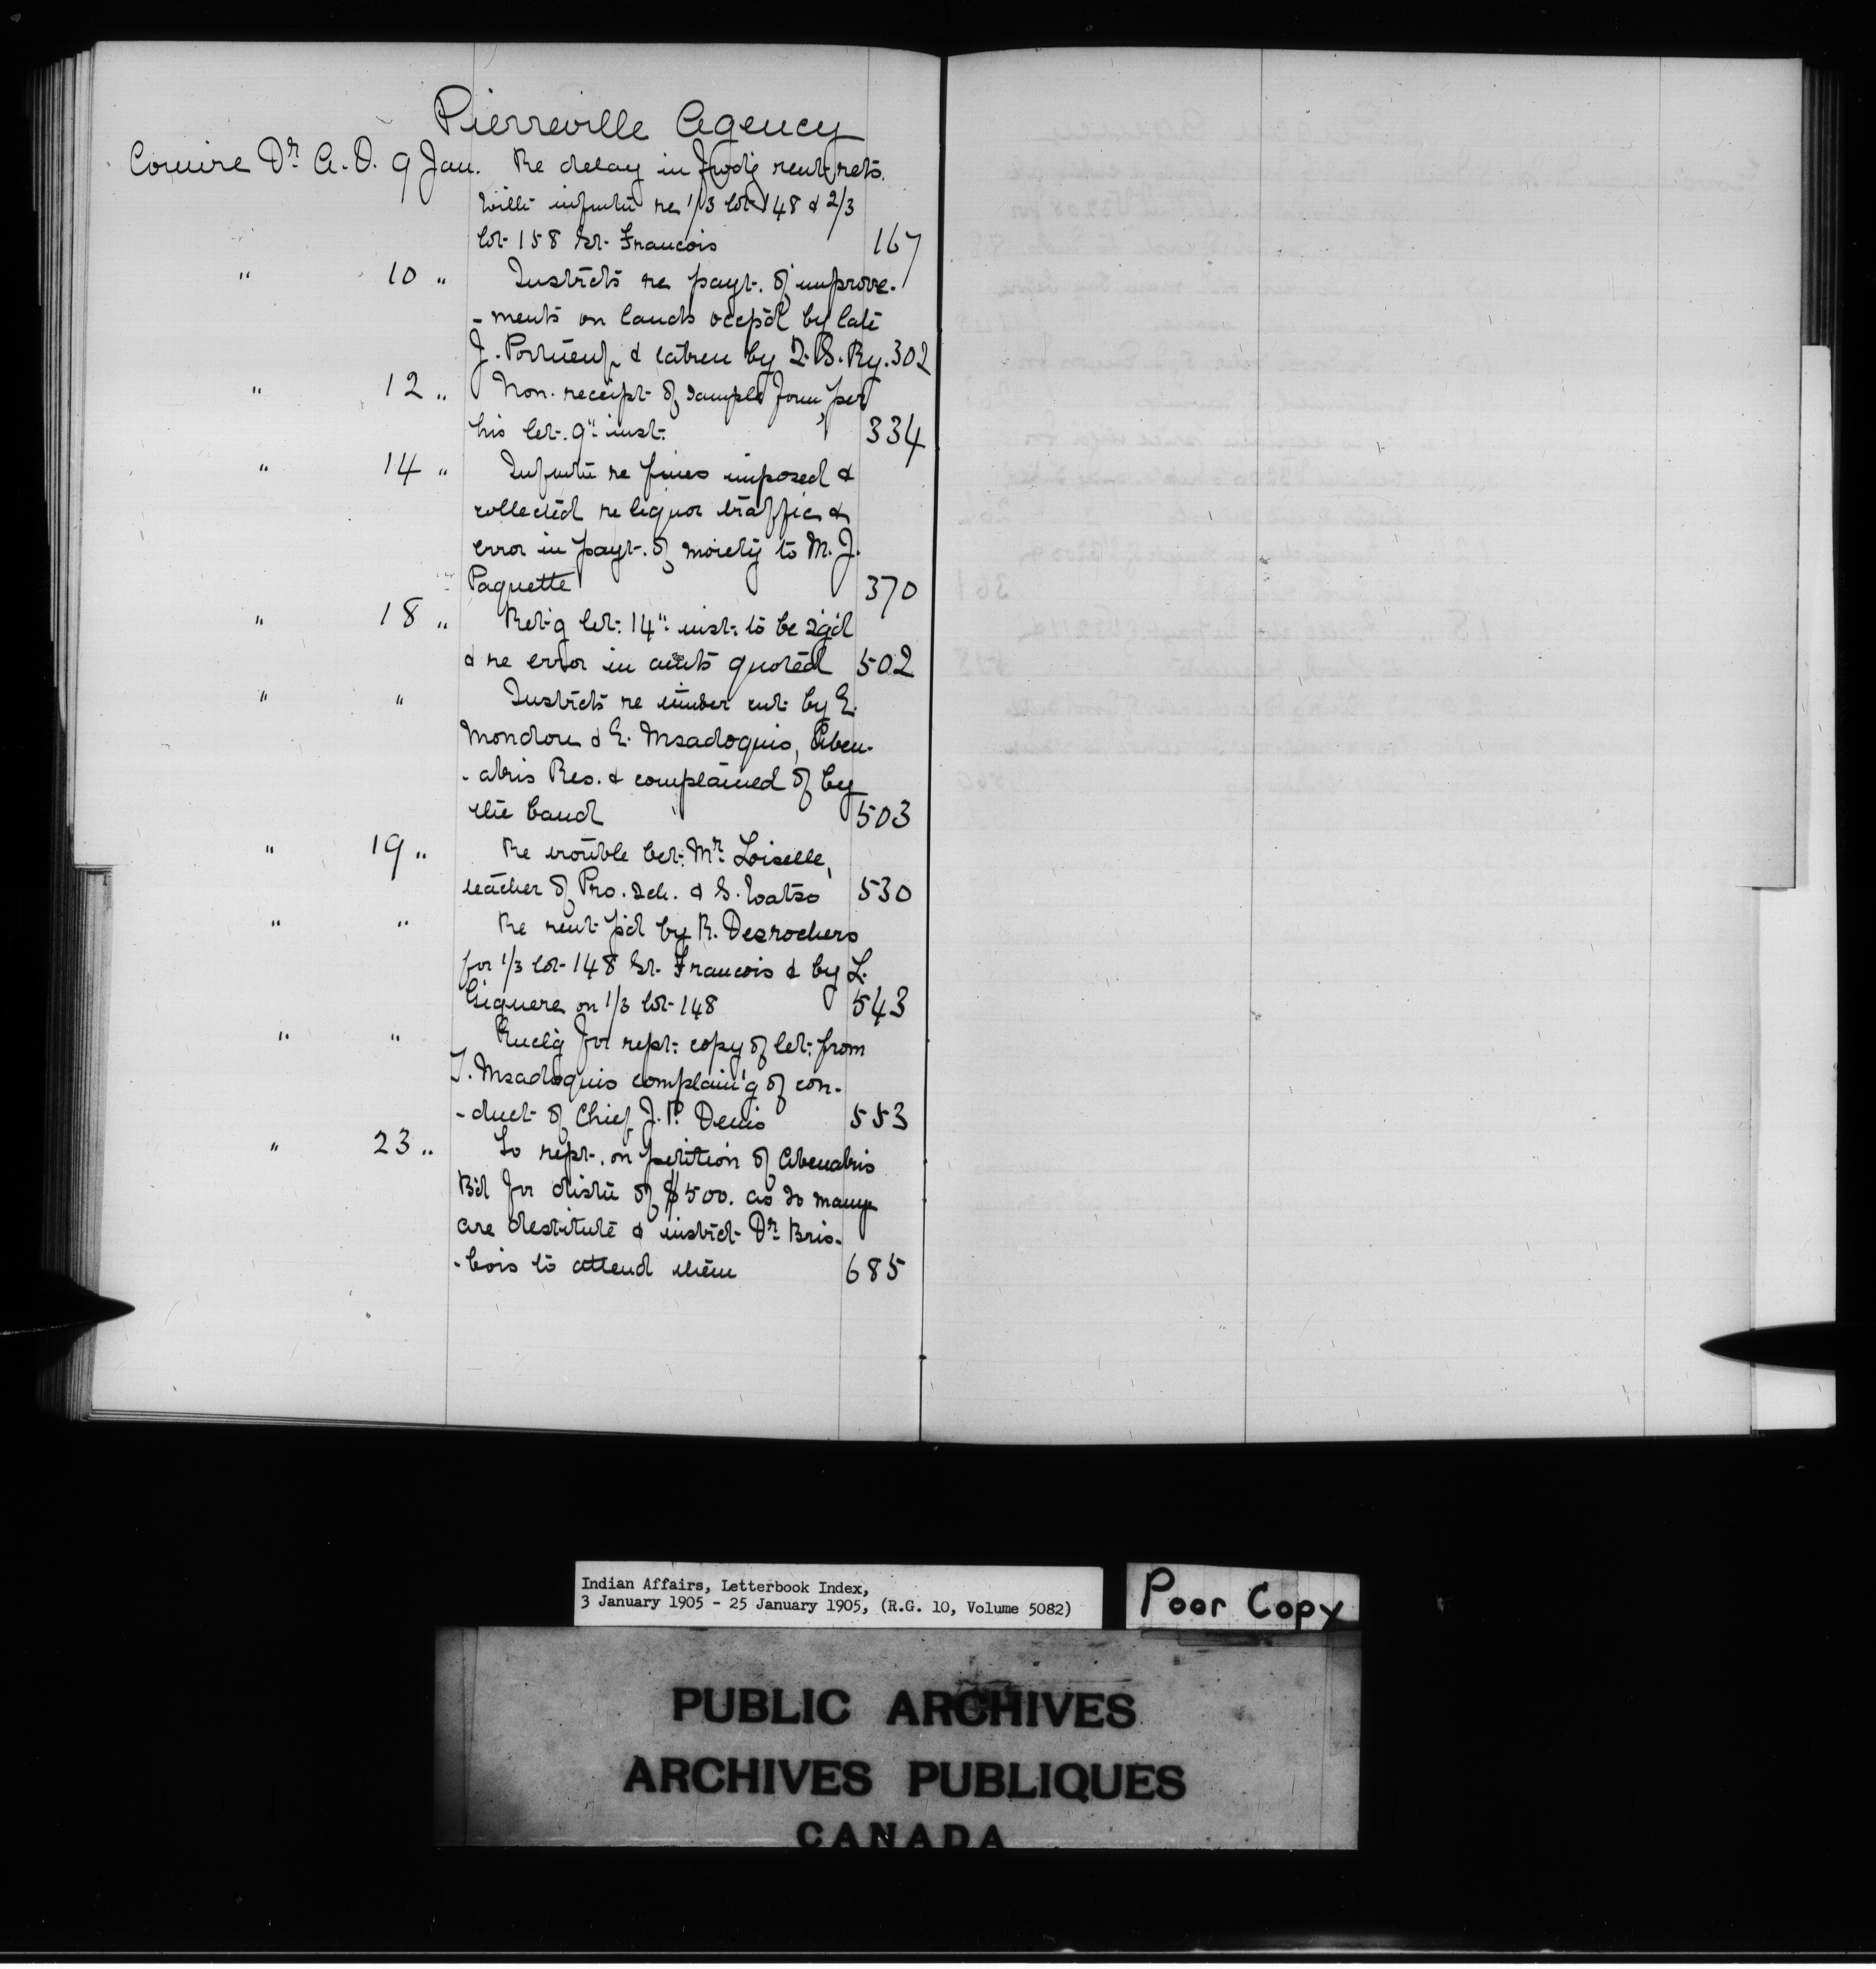 Pierreville Agency
Comire Dr. A. O. 9 Jan. Re delay in fwd'g rent rets.
with infmtn re 1/3 lot 148 & 2/3
lot 158 St. Francois 167
" 10 " Instrcts re payt. of improve-
-ments on lands occp'd by late
J. Portneuf & taken by Q. S. Ry. 302
" 12 " Non-receipt of sample form, per
his let. 9" inst. 334
" 14 " Infmtn re fines imposed &
collected re liquor traffic &
error in payt. of moiety to M. J.
Paquette 370
" 18 " Ret'g let. 14" inst. to be sg'd
& re error in amts quoted 502
" " Instrcts re timber cut by E.
Mondou & E. Msadoquis, Aben-
-akis Res. & complained of by
the band 503
" 19 " Re trouble bet. Mr. Loiselle,
teacher of Pro. Sch. & S. Watso 530
" " Re rent p'd by R. Desrochers
for 1/3 lot 148 St. Francois & by L.
Giguere on 1/3 lot 148 543
" " Encl'g for rept. copy of let. from
T. Msadoquis complain'g of con-
-duct of Chief J. P. Denis 553
" 23 " To rept. on petition of Abenakis
B'd for distn of $500. as so many
are destitute & instrct Dr. Bris-
-bois to attend them 685
Indian Affairs, Letterbook Index,
3 January 1905 - 25 January 1905, (R.G. 10, Volume 5082)
Poor Copy
PUBLIC ARCHIVES
ARCHIVES PUBLIQUES
CANADA